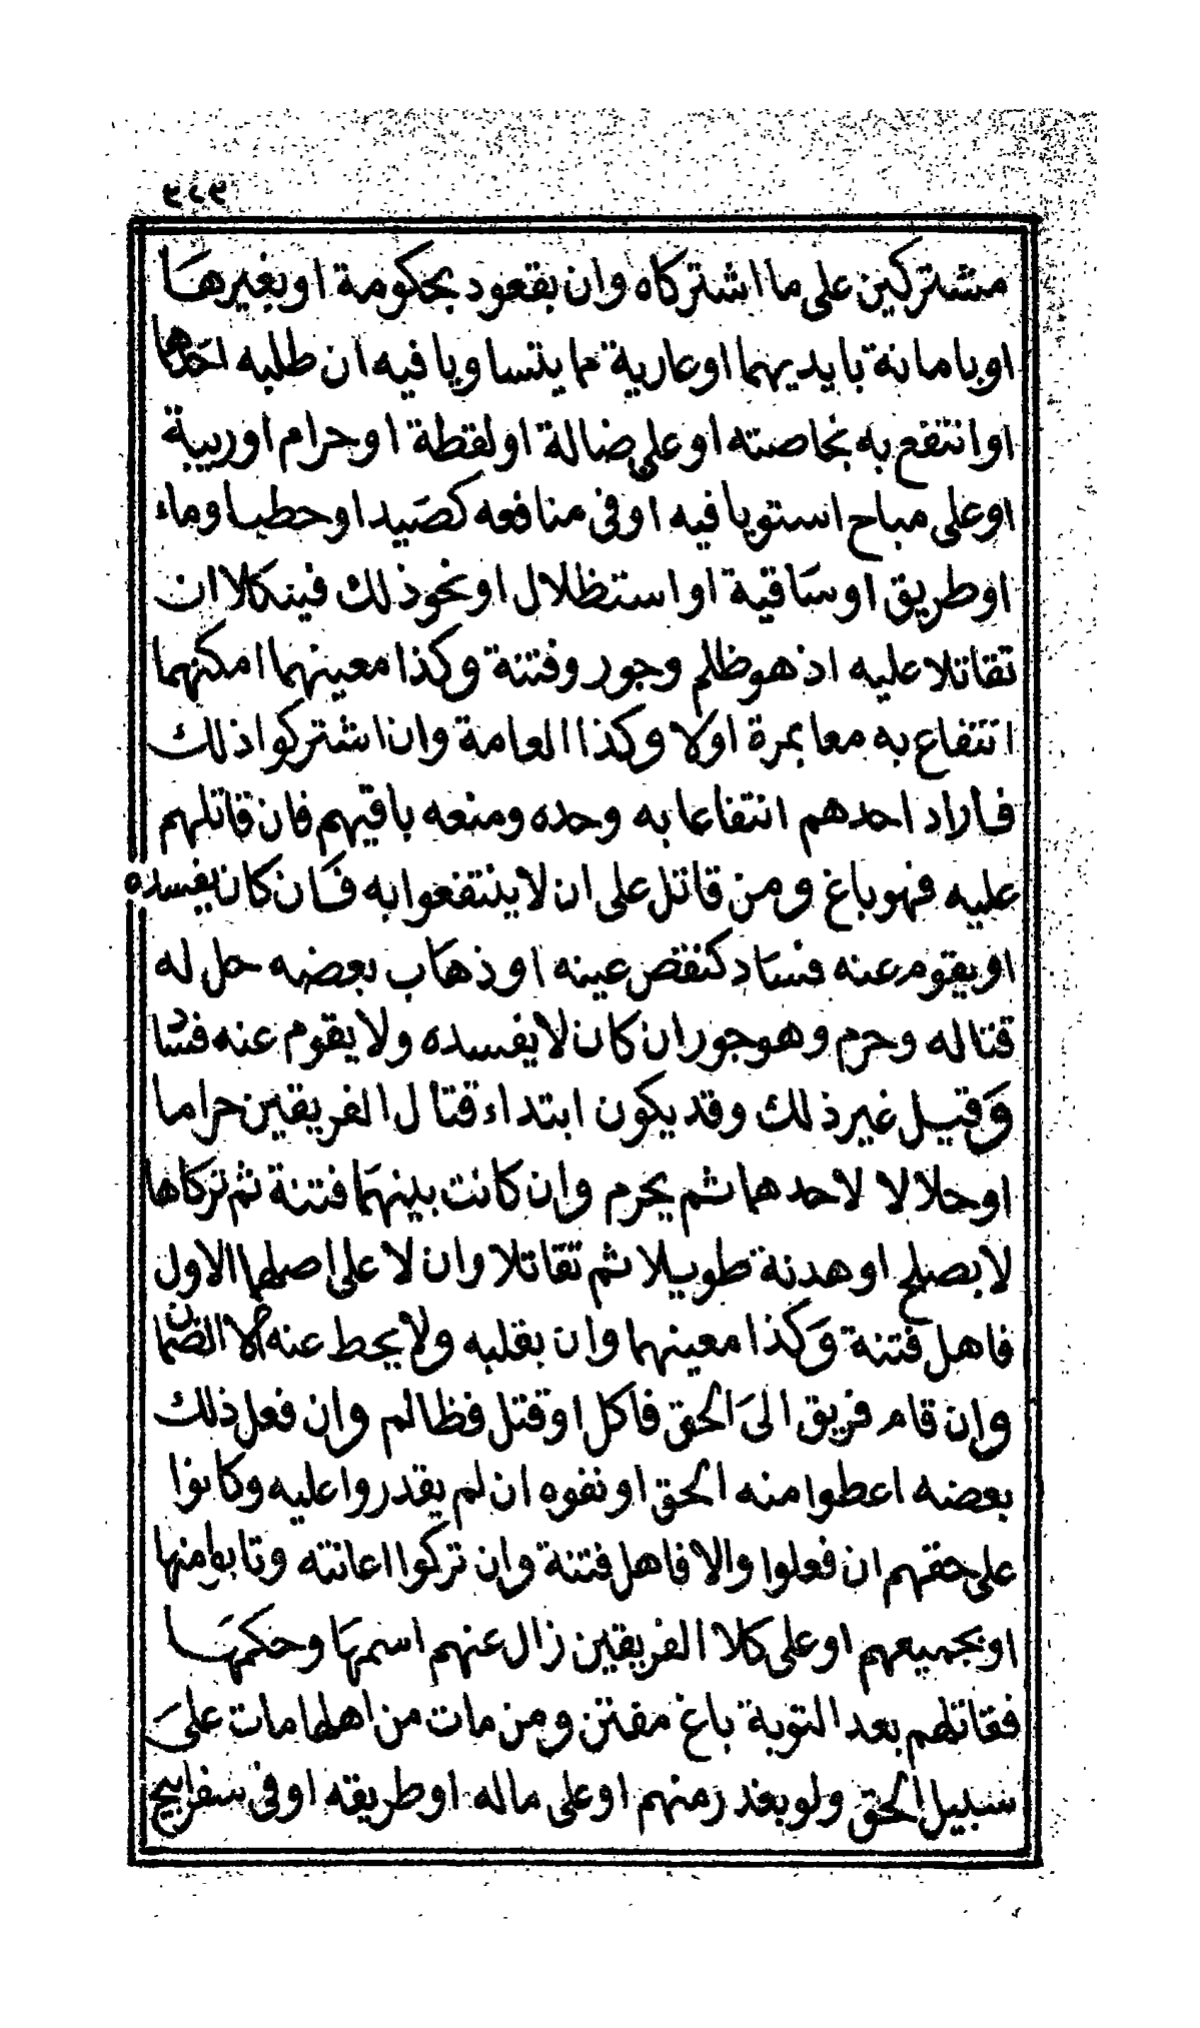 مشتركين على ما اشتركاه وان بقعود بحكومة او بغيرها
او بامانة بايديهما او عارية مما يتساويا فيه ان طلبه احدهما
او انتفع به بخاصته او على ضالة او لقطة او حرام او ريبة
او على مباح استويا فيه او فى منافعه كصيد او حطب او ماء
او طريق او ساقية او استظلال او نحو ذلك فينكالا ان
تقاتلا عليه اذ هو ظلم وجور وفتنة وكذا معينهما امكنهما
انتفاع به معا بمرة اولا وكذا العامة وان اشتركوا ذلك
فاراد احدهم انتفاعا به وحده ومنعه باقيهم فان قاتلهم
عليه فهو باغ ومن قاتل على ان لا ينتفعوا به فان كان يفسده
او يقوم عنه فساد كنقص عينه او ذهاب بعضه حل له
قتاله وحرم وهو جور ان كان لا يفسده ولا يقوم عنه فساد
وقيل غير ذلك وقد يكون ابتداء قتال الفريقين حراما
او حلالا لاحدهما ثم يحرم وان كانت بينهما فتنة ثم تركاها
لا بصلح او هدنة طويلا ثم تقاتلا وان لا على اصلهما الاول
فاهل فتنة وكذا معينهما وان بقلبه ولا يحط عنه الا الضمان
وان قام فريق الى الحق فاكل او قتل فظالم وان فعل ذلك
بعضه اعطوا منه الحق او نفوه ان لم يقدروا عليه وكانوا
على حقهم ان فعلوا والا فاهل فتنة وان تركوا اعانته وتابوا منها
او بجميعهم او على كلا الفريقين زال عنهم اسمها وحكمها
فقاتلهم بعد التوبة باغ مفتن ومن مات من اهلها مات على
سبيل الحق ولو بغدر منهم او على ماله او طريقه او فى سفر ابيح